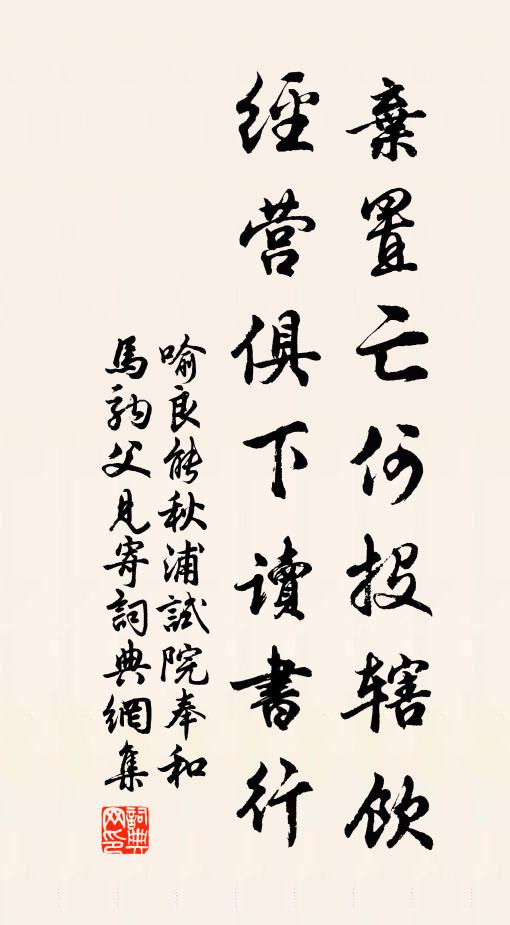 棄置亡何投辖飲
經营俱下讀書行
喻良能秋浦試院奉和
馬駒父見寄詞典網集
詞典網印